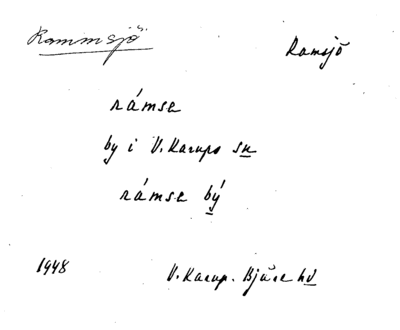 Rammsjö Ramsjö
rámse
by i V. Karups sn
rámse bý
1948 V. Karup. Bjäre hd